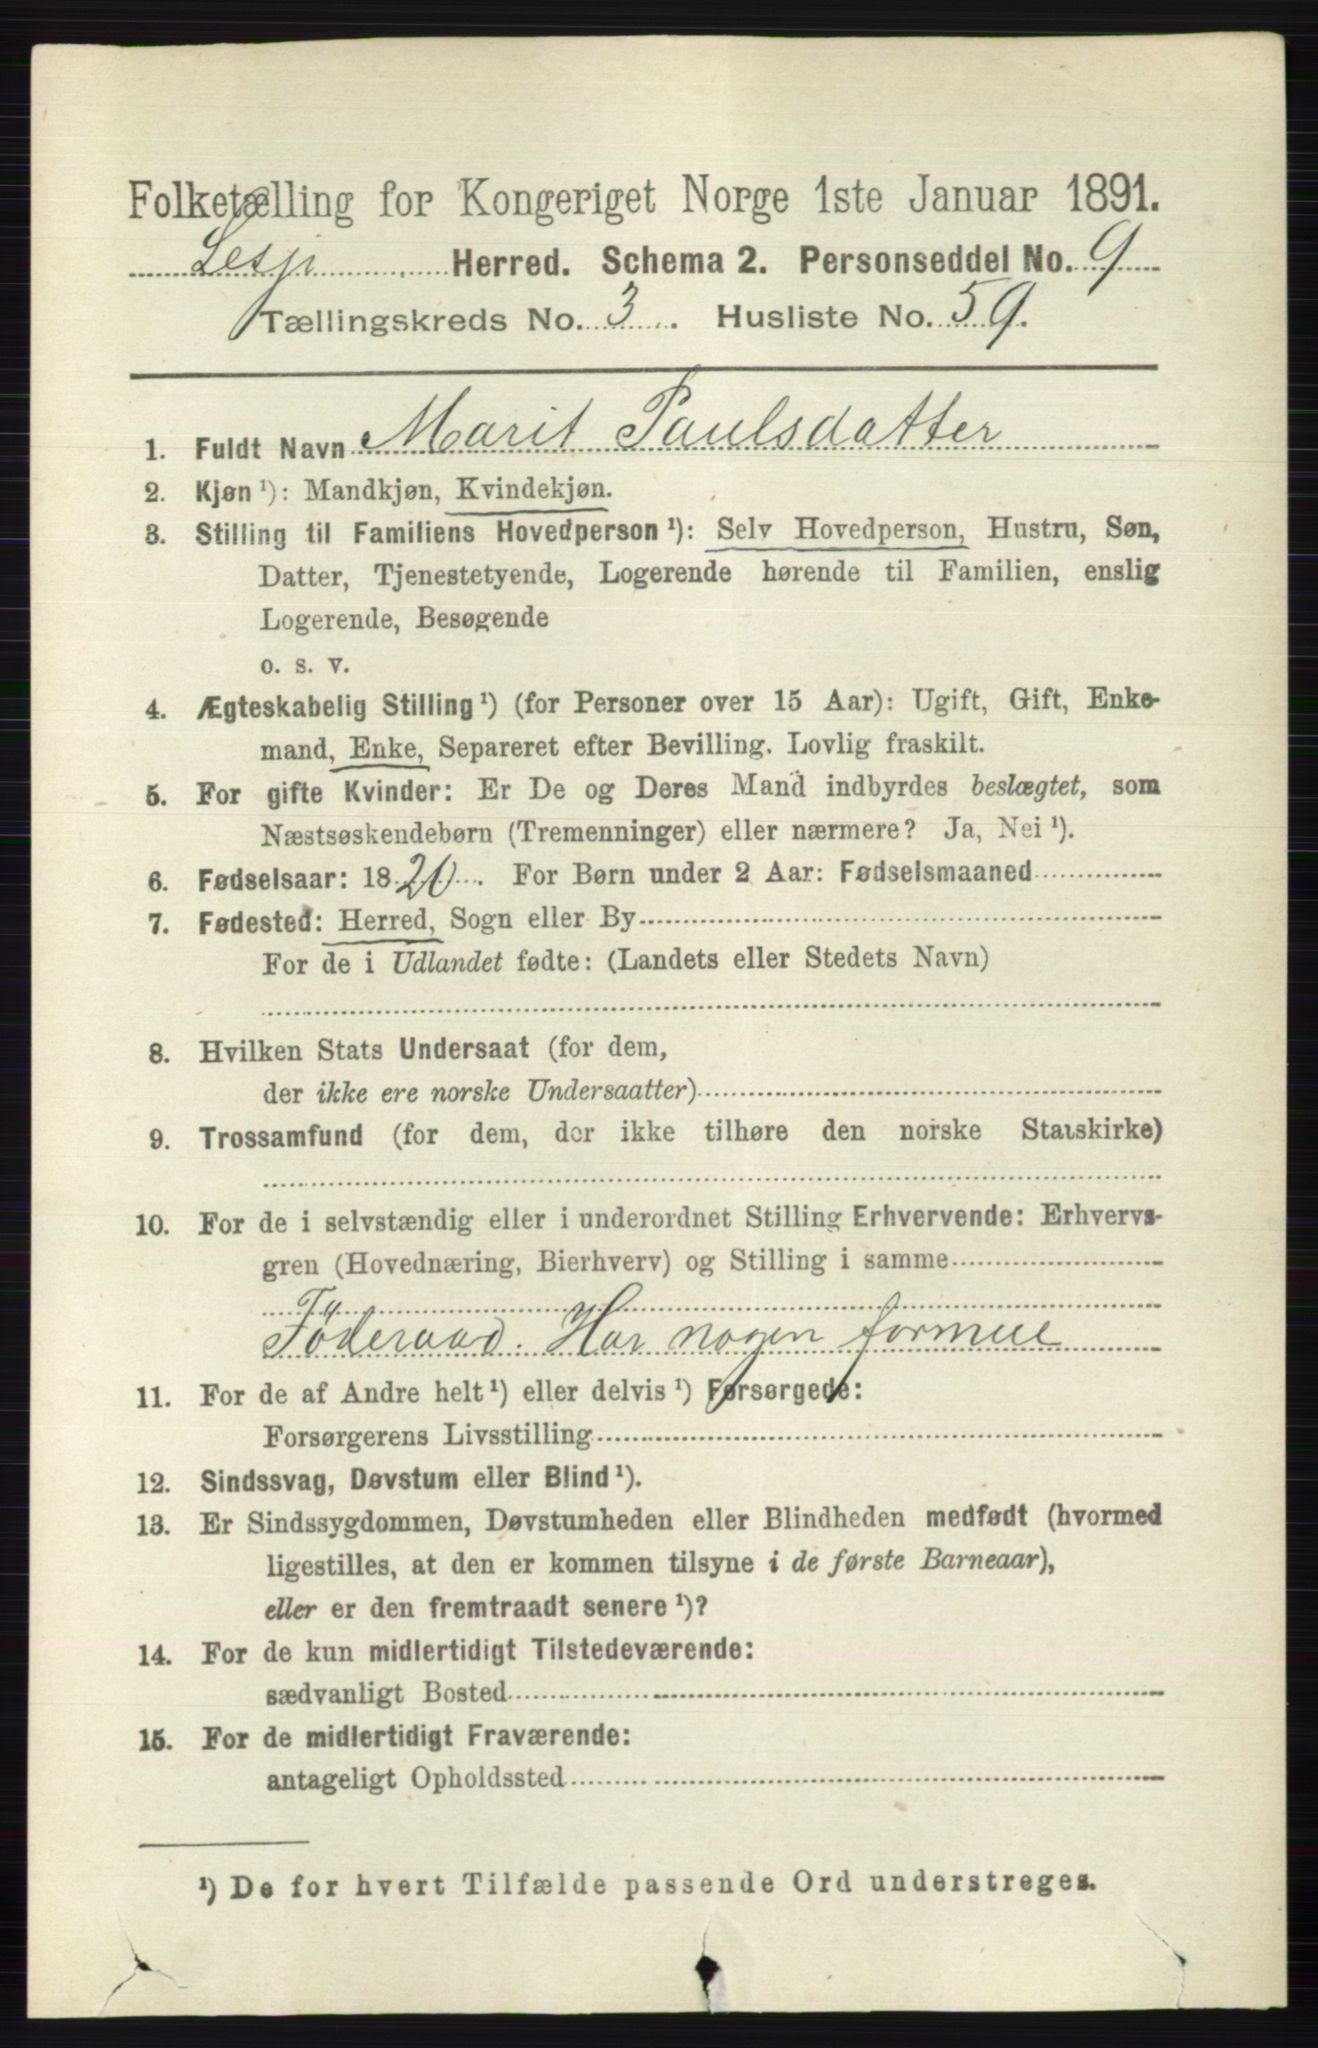 Folketælling for Kongeriget Norge 1ste Januar 1891.
Lesje Herred. Schema 2. Personseddel No. 9
Tællingskreds No. 3. Husliste No. 59.
1. Fuldt Navn Marit Paulsdatter
2. Kjøn ¹): Mandkjøn, Kvindekjøn.
3. Stilling til Familiens Hovedperson ¹): Selv Hovedperson, Hustru, Søn,
Datter, Tjenestetyende, Logerende hørende til Familien, enslig
Logerende, Besøgende
o. s. v.
4. Ægteskabelig Stilling ¹) (for Personer over 15 Aar): Ugift, Gift, Enke-
mand, Enke, Separeret efter Bevilling. Lovlig fraskilt.
5. For gifte Kvinder: Er De og Deres Mand indbyrdes beslægtet, som
Næstsøskendebørn (Tremenninger) eller nærmere? Ja, Nei ¹).
6. Fødselsaar: 1820. For Børn under 2 Aar: Fødselsmaaned
7. Fødested: Herred, Sogn eller By
For de i Udlandet fødte: (Landets eller Stedets Navn)
8. Hvilken Stats Undersaat (for dem,
der ikke ere norske Undersaatter)
9. Trossamfund (for dem, der ikke tilhøre den norske Statskirke)
10. For de i selvstændig eller i underordnet Stilling Erhvervende: Erhvervs-
gren (Hovednæring, Bierhverv) og Stilling i samme
Föderaad. Har nogen formue
11. For de af Andre helt ¹) eller delvis ¹) Forsørgede:
Forsørgerens Livsstilling
12. Sindssvag, Døvstum eller Blind ¹).
13. Er Sindssygdommen, Døvstumheden eller Blindheden medfødt (hvormed
ligestilles, at den er kommen tilsyne i de første Barneaar),
eller er den fremtraadt senere ¹)?
14. For de kun midlertidigt Tilstedeværende:
sædvanligt Bosted
15. For de midlertidigt Fraværende:
antageligt Opholdssted
¹) De for hvert Tilfælde passende Ord understreges.